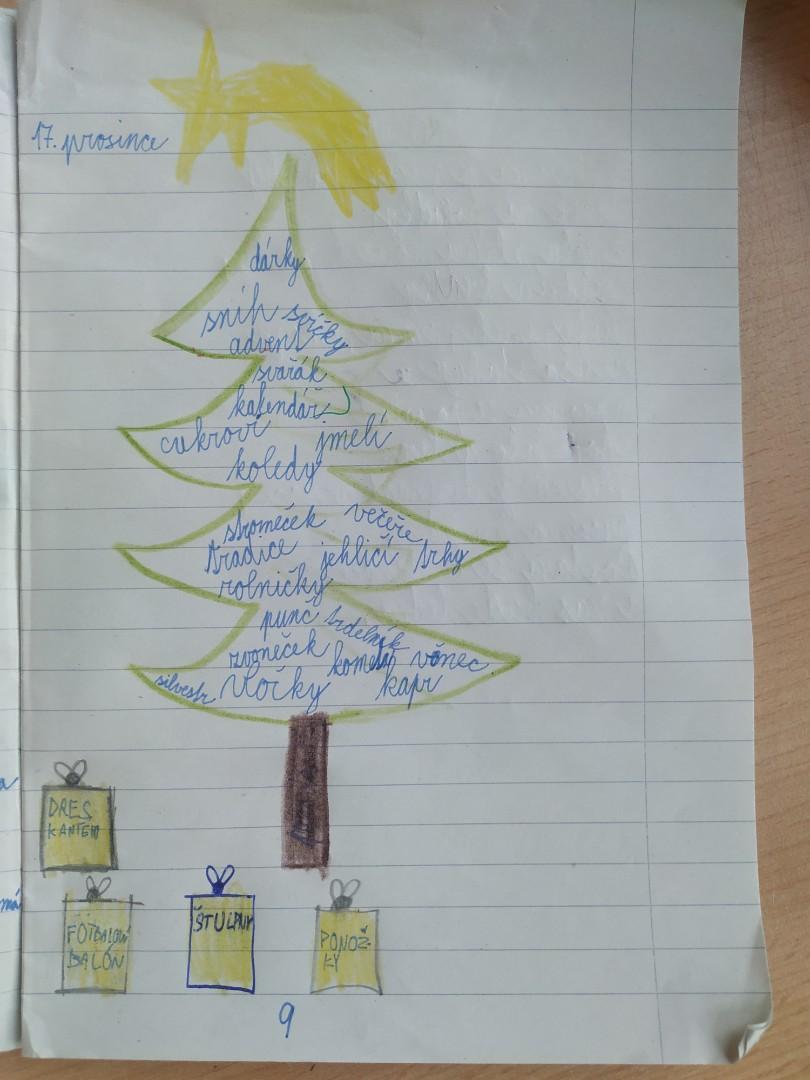 17. prosince
dárky
sníh svíčky
advent
svařák
kalendář
cukroví jmelí
koledy
stromeček večeře
tradice jehličí trhy
rolničky
punč trdelník
zvoneček kometa věnec
silvestr vločky kapr
DRES
KANTEM
FOTBALOVÝ
BALÓN
ŠTULPNY
PONOŽ-
KY
9